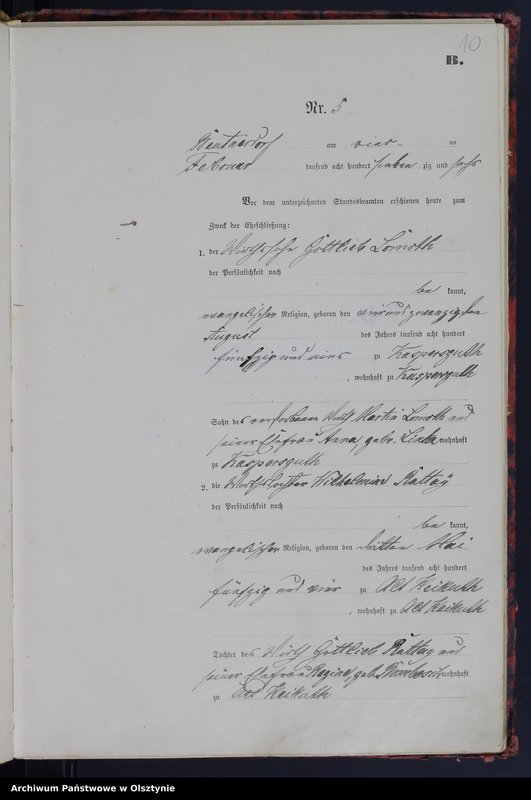 10
B.
Nr. 5
am vier- ten
Februar tausend acht hundert sieben zig und sechs
Vor dem unterzeichneten Standesbeamten erschienen heute zum
Zweck der Eheschließung:
1. der Wirthssohn Gottlieb Lomoth
der Persönlichkeit nach
be kannt,
evangelischer Religion, geboren den vier und zwanzigsten
August des Jahres tausend acht hundert
fünfzig und eins zu Kaspersguth
, wohnhaft zu Kaspersguth
Sohn des verstorbenen Wirth Martin Lomoth und
seiner Ehefrau Anna, geb. wohnhaft
zu Kaspersguth
2. die Wirthstochter Wilhelmine Rattay
der Persönlichkeit nach
be kannt,
evangelischer Religion, geboren den dritten Mai
des Jahres tausend acht hundert
fünfzig und vier zu Alt Keikuth
, wohnhaft zu Alt Keikuth
Tochter des Wirth Gottlieb Rattay und
seiner Ehefrau Regine, geb. wohnhaft
zu Alt Keikuth
Archiwum Państwowe w Olsztynie